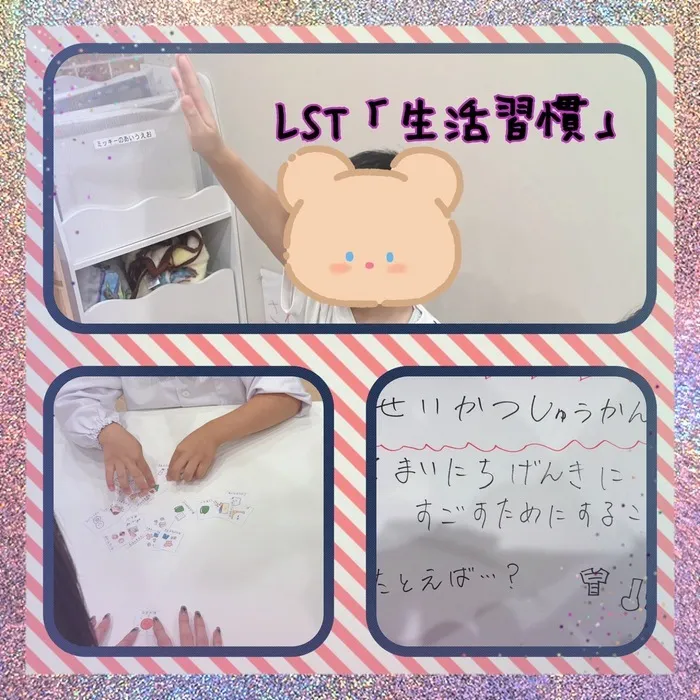 LST「生活習慣」
ミッキーのあいうえお
せいかつしゅうかん
まいにちげんきに
すごすためにするこ
たとえば…?